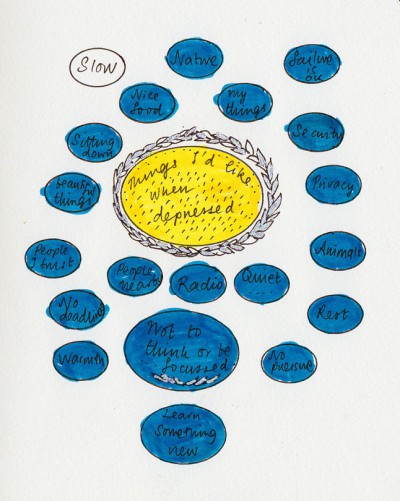 Slow
Nature
Failure
is
ok
Nice
food
my
things
Sitting
down
Security
Things I'd like
when
depressed
beautiful
things
Privacy
People
I trust
People
nearby
Radio
Quiet
Animals
No
deadline
Rest
Not to
think or be
focussed
Warmth
No
Learn
Something
new